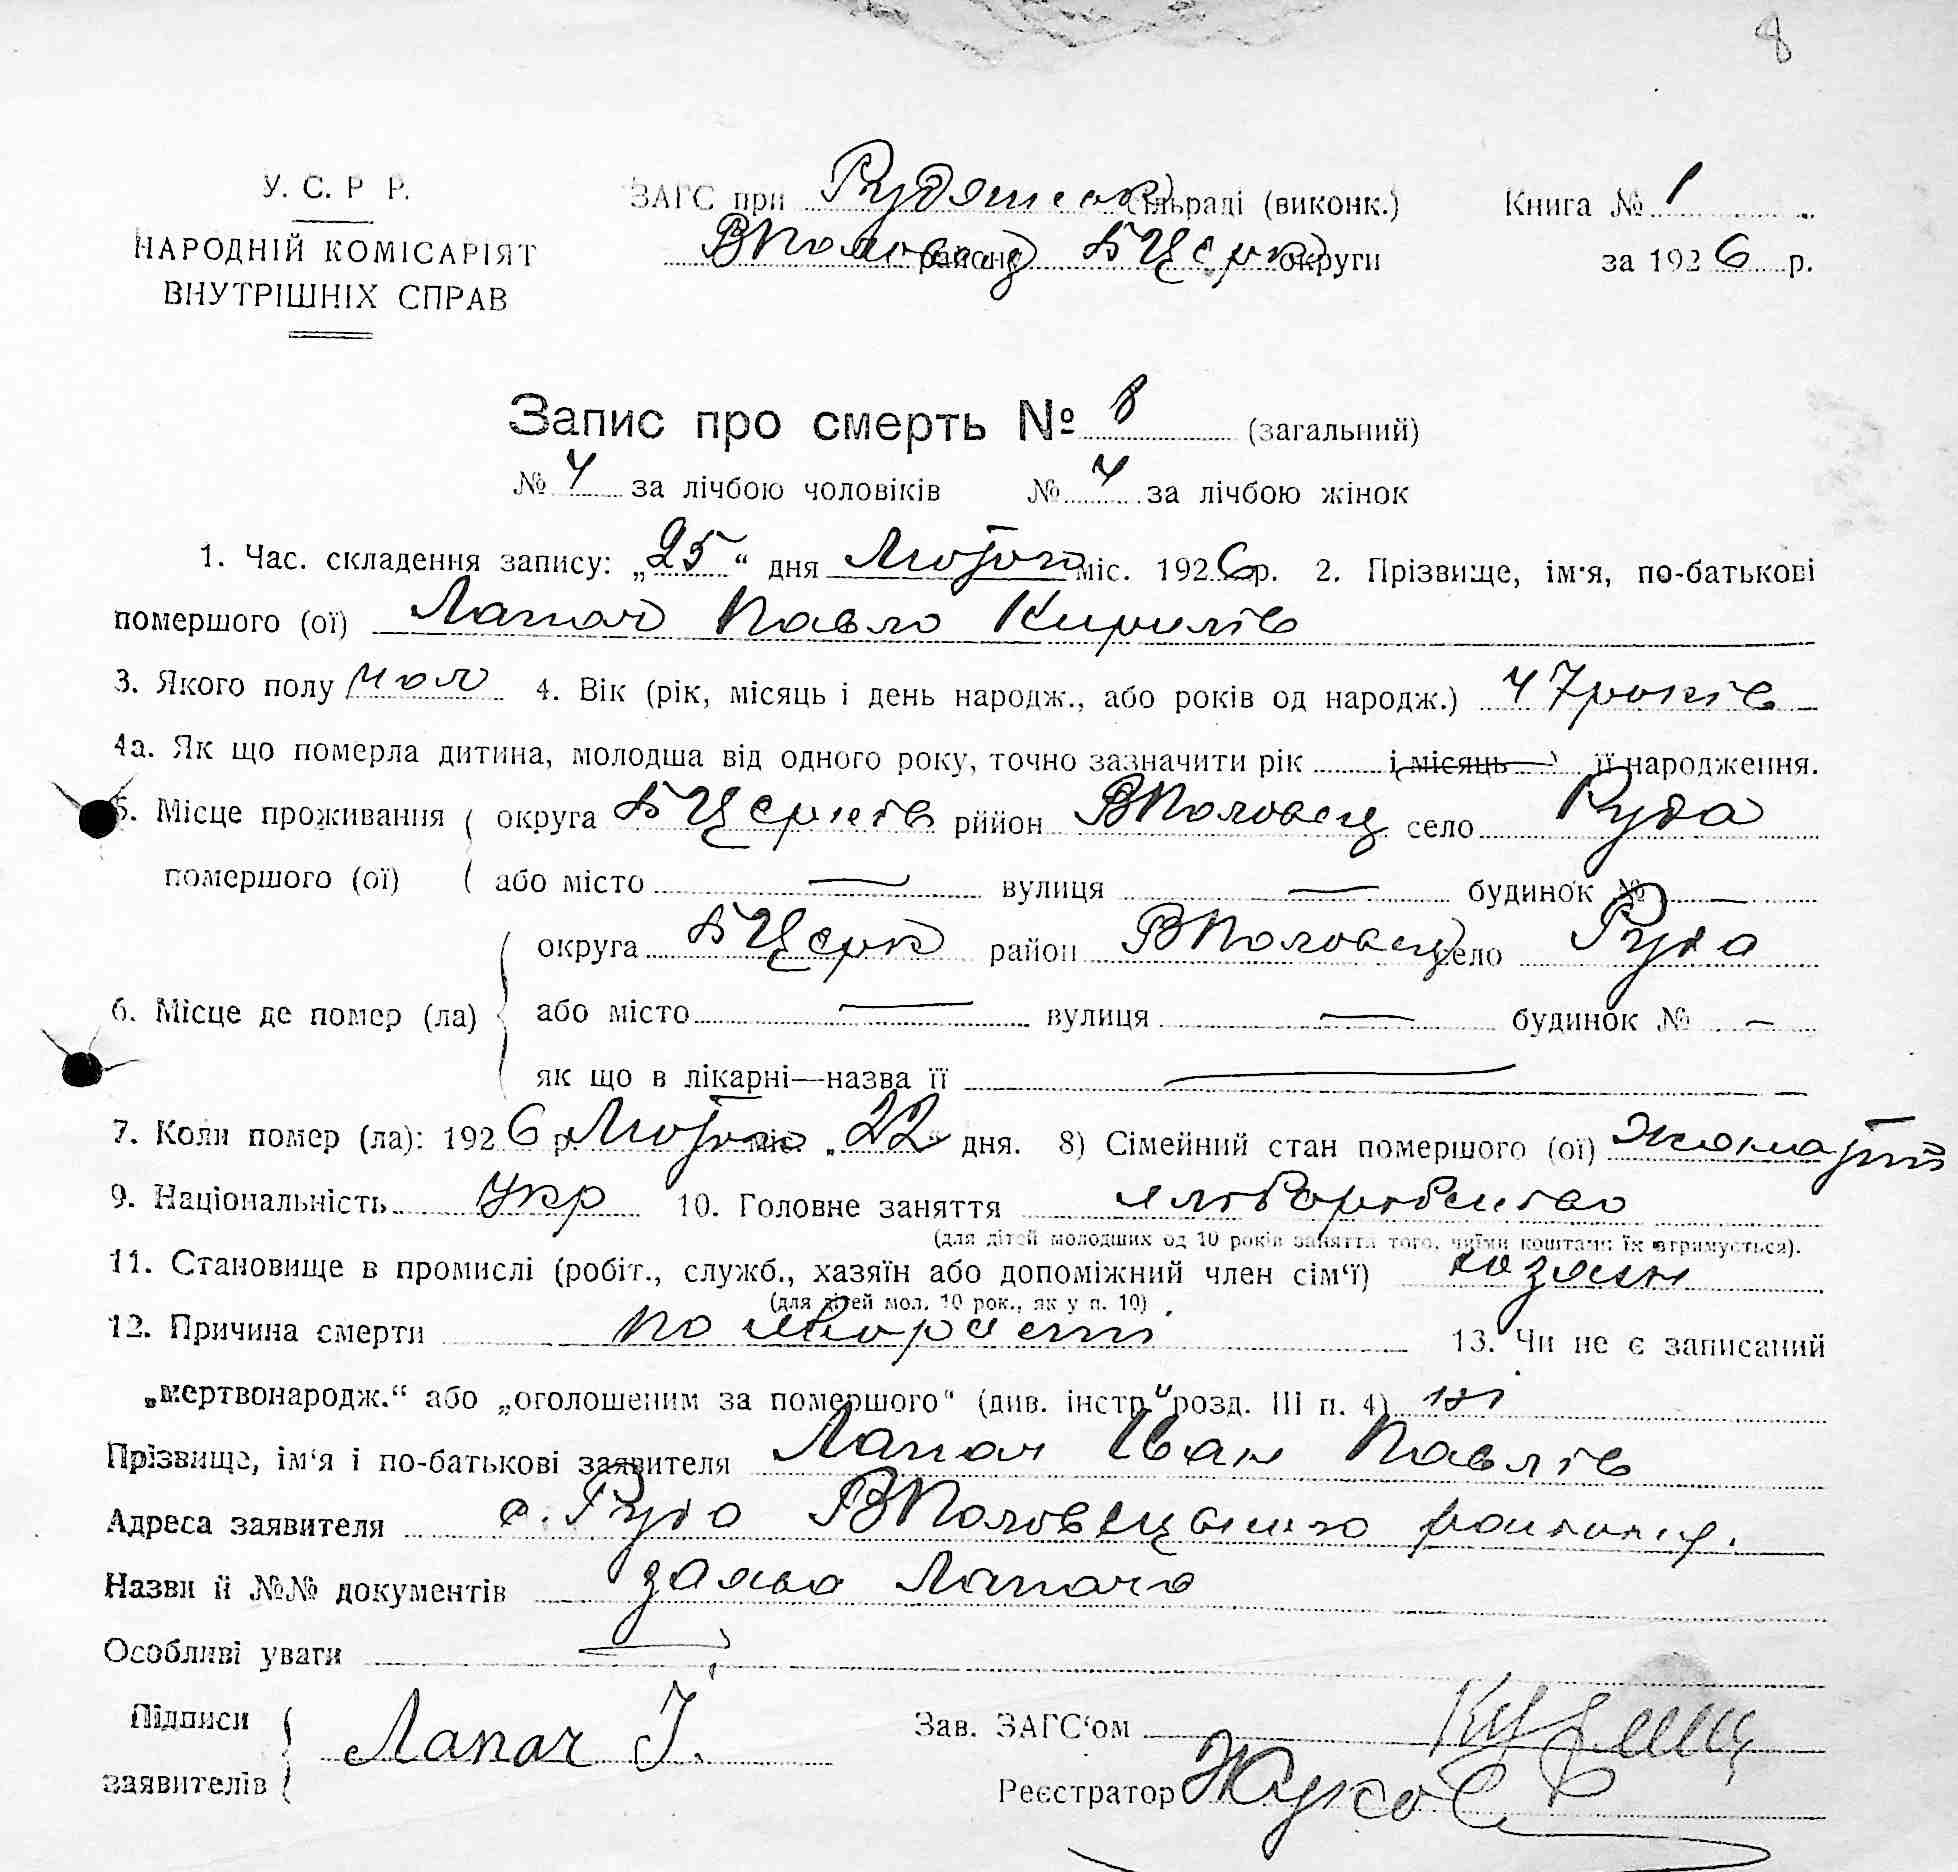 8
У. С. Р Р.
НАРОДНІЙ КОМІСАРІЯТ
ВНУТРІШНІХ СПРАВ
ЗАГС при Рудянськ сільраді (виконк.)
ВПоловец району БЦерк округи
Книга № 1
за 1926 р.
Запис про смерть № 8 (загальний)
№ 4 за лічбою чоловіків № 4 за лічбою жінок
1. Час. складення запису: „25“ дня Лютого міс. 1926 р. 2. Прізвище, ім'я, по-батькові
помершого (ої) Лапач Павло Кирилів
3. Якого полу чол 4. Вік (рік, місяць і день народж., або років од народж.) 47 років
4а. Як що померла дитина, молодша від одного року, точно зазначити рік і місяць її народження.
5. Місце проживання округа БЦерків рййон ВПоловец село Руда
помершого (ої) або місто — вулиця — будинок № —
округа БЦерк район ВПоловец село Руда
6. Місце де помер (ла) або місто — вулиця — будинок № —
як що в лікарні—назва її —
7. Коли помер (ла): 1926 р. Лютого міс. „22“ дня. 8) Сімейний стан помершого (ої) жонатий
9. Національність Укр 10. Головне заняття хліборобство
(для дітей молодших од 10 років заняття того, чиїми коштами їх втримується).
11. Становище в промислі (робіт., служб., хазяїн або допоміжний член сім'ї) хозяїн
(для дітей мол. 10 рок., як у п. 10)
12. Причина смерти по 13. Чи не є записаний
„мертвонародж.“ або „оголошеним за помершого“ (див. інстр. розд. III п. 4) ні
Прізвище, ім'я і по-батькові заявителя Лапач Іван Павлів
Адреса заявителя с. Руда ВПоловецького району.
Назви й №№ документів заява Лапача
Особливі уваги —
Підписи
заявителів Лапач І.
Зав. ЗАГС'ом
Реєстратор Жуков